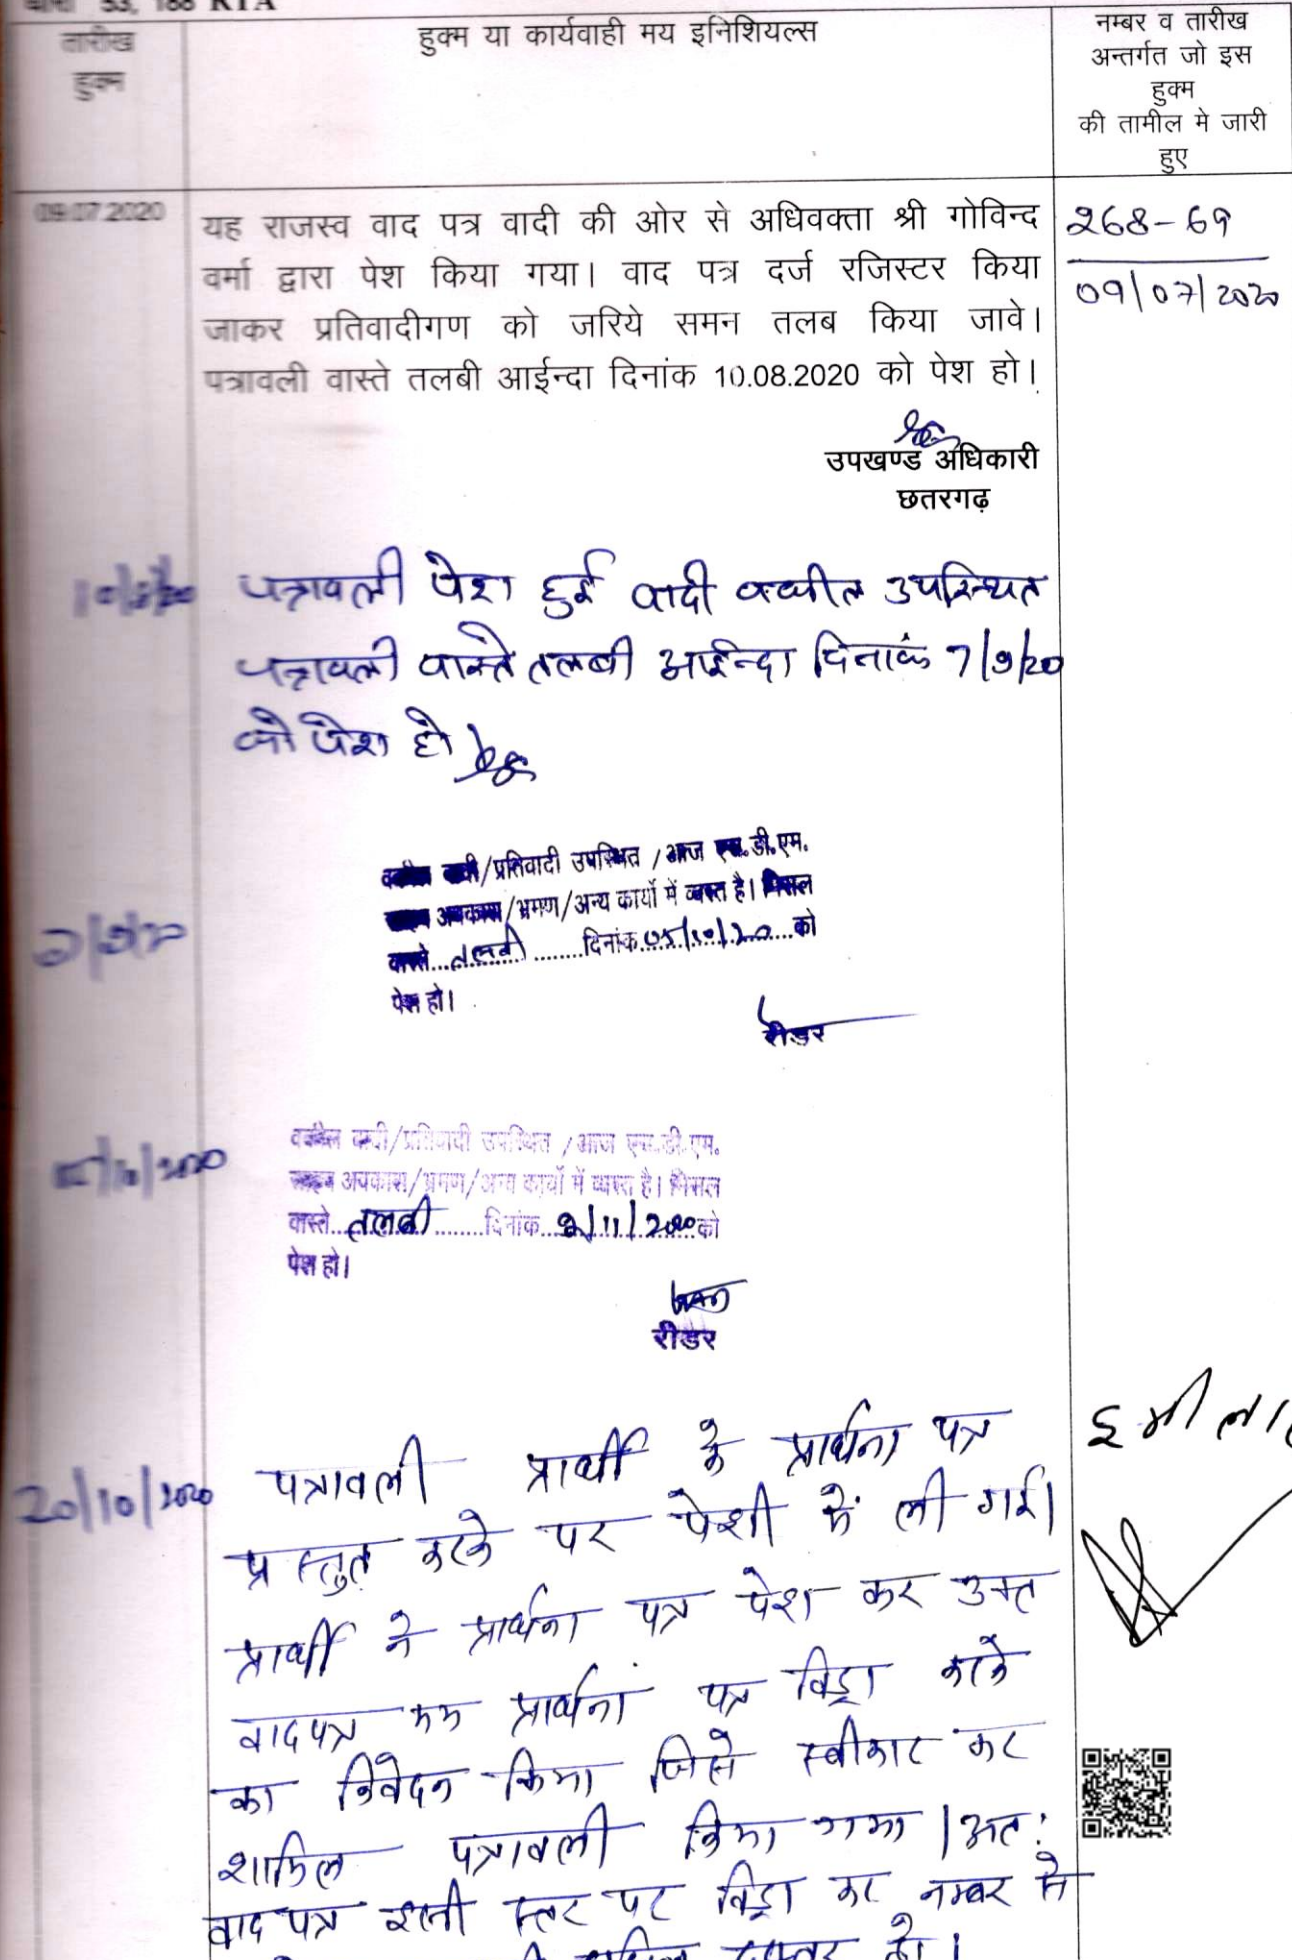 धारा 53, 188 RTA
तारीख
हुक्म
हुक्म या कार्यवाही मय इनिशियल्स
नम्बर व तारीख
अन्तर्गत जो इस
हुक्म
की तामील मे जारी
हुए
09.07.2020
यह राजस्व वाद पत्र वादी की ओर से अधिवक्ता श्री गोविन्द
वर्मा द्वारा पेश किया गया। वाद पत्र दर्ज रजिस्टर किया
जाकर प्रतिवादीगण को जरिये समन तलब किया जावे।
पत्रावली वास्ते तलबी आईन्दा दिनांक 10.08.2020 को पेश हो।
268-69
09/07/2020
उपखण्ड अधिकारी
छतरगढ़
पत्रावली पेश हुई वादी वकील उपस्थित
पत्रावली वास्ते तलबी आईन्दा दिनांक 7/9/20
को पेश हो
वकील वादी/प्रतिवादी उपस्थित / आज एस.डी.एम.
साहब अवकाश/भ्रमण/अन्य कार्यो में व्यस्त है। मिसल
वास्ते...तलबी...........दिनांक..05/10/20....को
पेश हो।
रीडर
5/10/2020
वकील वादी/प्रतिवादी उपस्थित / आज एस.डी.एम.
साहब अवकाश/भ्रमण/अन्य कार्यो में व्यस्त है। मिसल
वास्ते...तलबी..........दिनांक.../11/2020को
पेश हो।
रीडर
20/10/2020
पत्रावली प्रार्थी के प्रार्थना पत्र
प्रस्तुत करके पर पेशी में ली गई।
प्रार्थी ने प्रार्थना पत्र पेश कर उक्त
वादपत्र प्रार्थना पत्र विड्रा करके
का निवेदन किया जिसे स्वीकार कर
शामिल पत्रावली किया गया। अत:
वाद पत्र इसी स्तर पर विड्रा कर नम्बर से
हो।